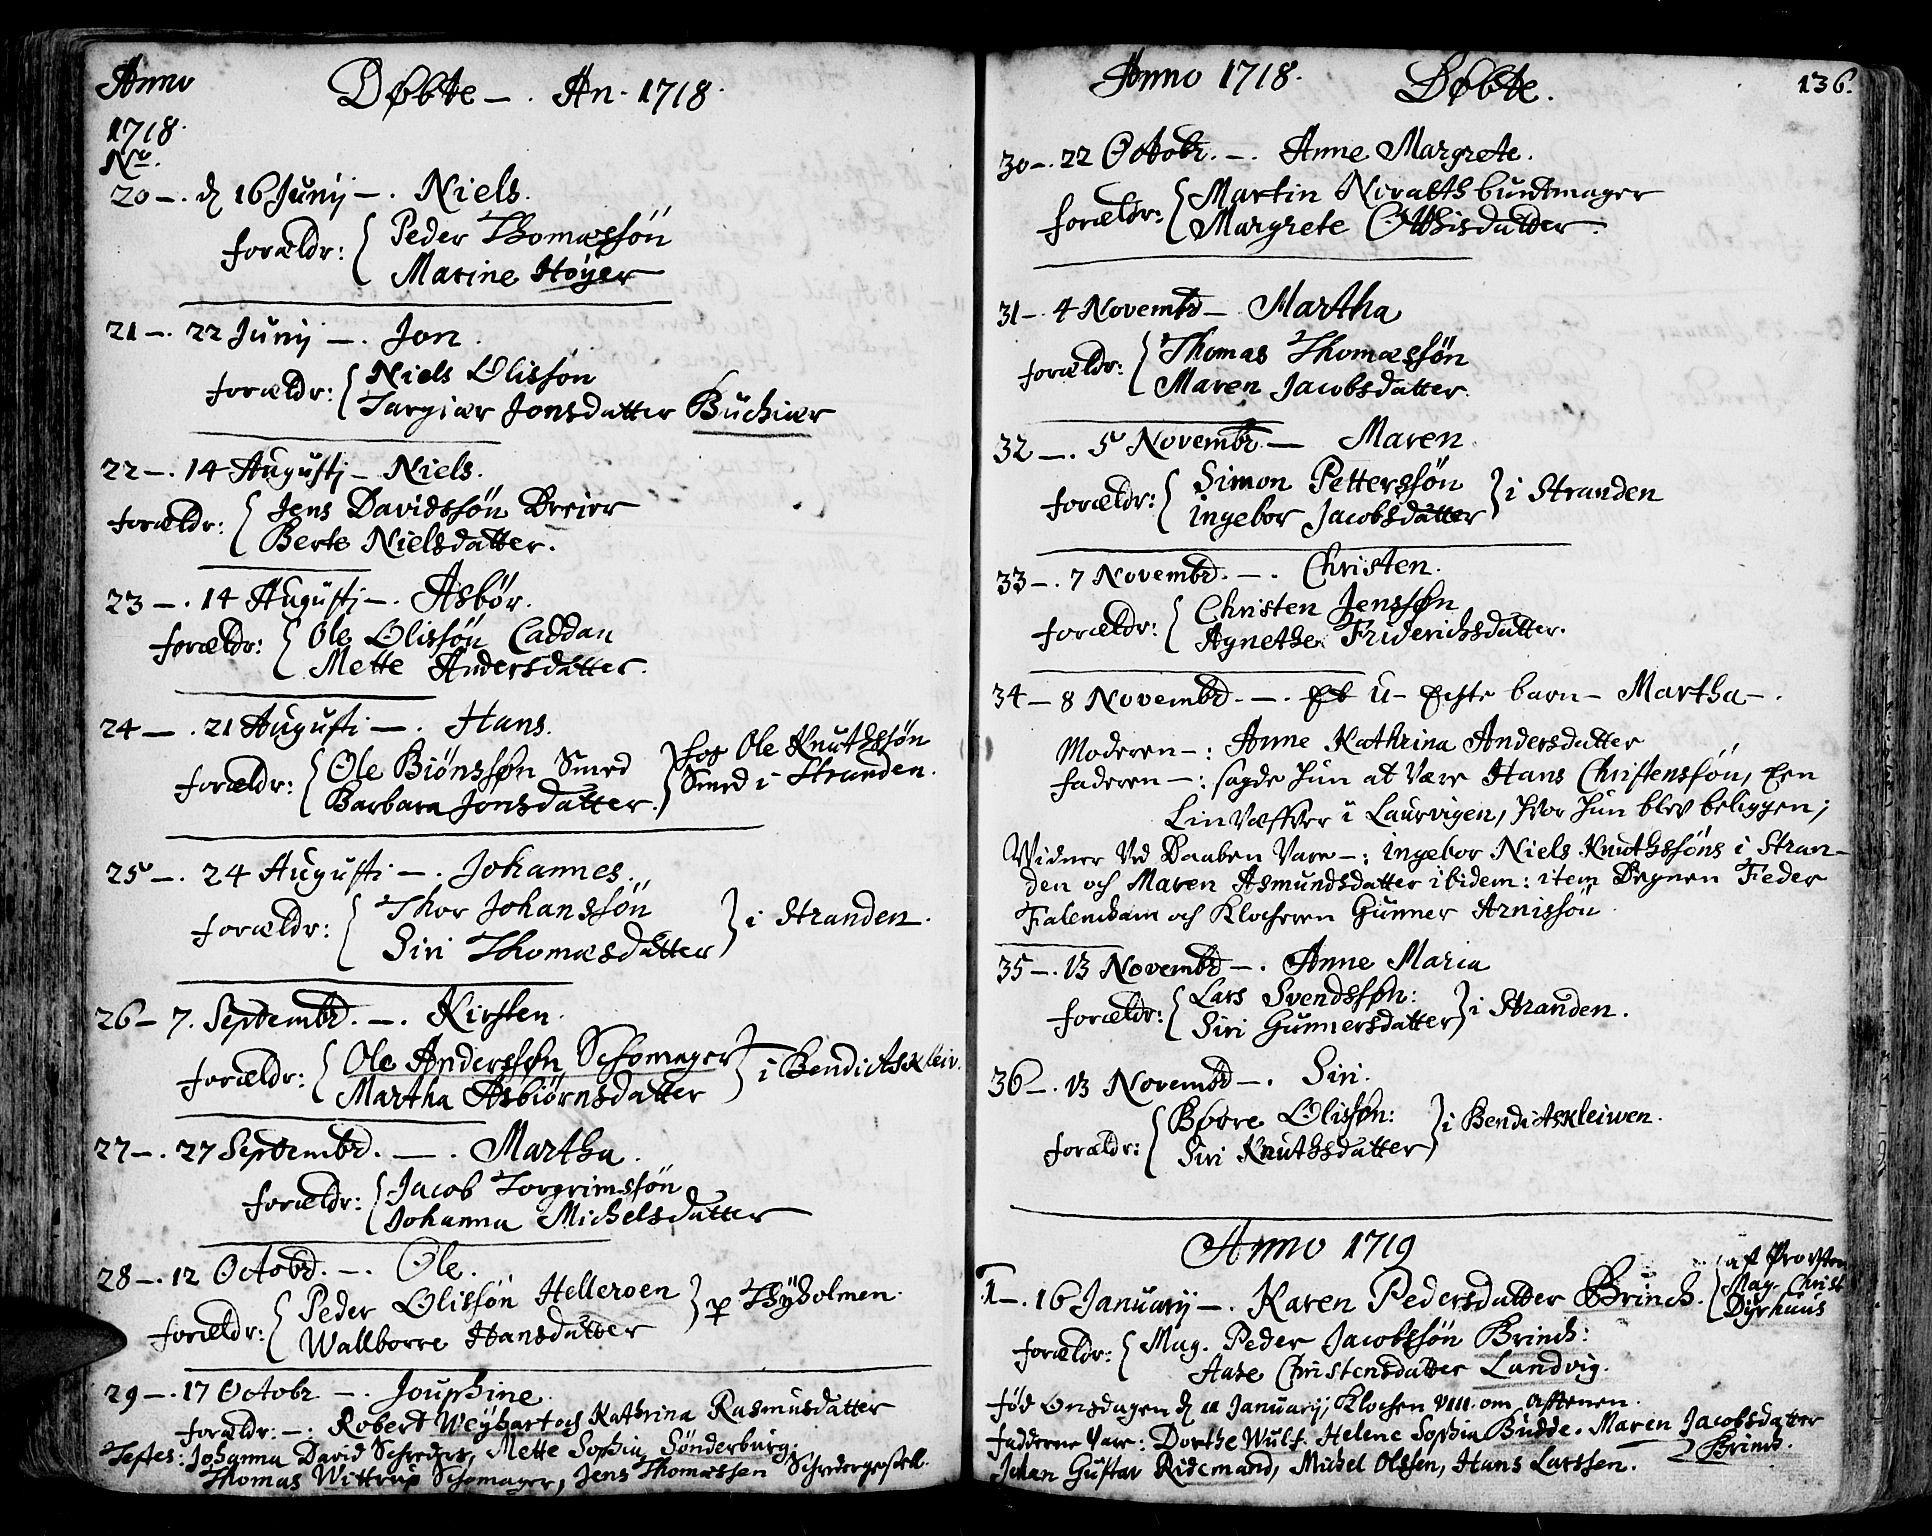 Anno
1718.
No.
Døbte —. An. 1718.
20 —. d 16 Junij —. Niels.
forældr: Peder Thomæssön
Marine Höyer
21 —. 22 Junij —. Jon.
forældr: Niels Olissön
Targiær Jonsdatter Buchiær
22 —. 14 Augustj — Niels.
forældr: Jens Davidssön Dreier
Berte Nielsdatter.
23 —. 14 Augustj —. Asbör.
forældr: Ole Olissön Caddan
Mette Andersdatter.
24 —. 21 Augusti —. Hans.
forældr: Ole Biönssøn Smed
Barbara Jonsdatter.
hos Ole Knuthssøn
Smed i Stranden.
25 —. 24 Augusti —. Johannes.
forældr: Thor Johanssön
Siri Thomæsdatter
i Stranden.
26 — 7. Septembr. —. Kirsten.
forældr: Ole Anderssøn Schomager
Martha Asbiörnsdatter
i Bendictskleiv.
27 —. 27 Septembr. —. Martha.
forældr: Jacob Torgrimssön
Johanna Michelsdatter
28 —. 12 Octobr. —. Ole.
forældr: Peder Olissön Helleroen
Wallborre Hansdatter
p Thÿholmen.
29 —. 17 Octobr —. Jouphine.
forældr: —: Robert Weÿhart och Kathrina Rasmusdatter
Testes: Johanna David Schrders, Mette Sophia Sönderburg.
Thomas Wittrup Schomager, Jens Thomæssen Schredergesell.
Anno 1718. Døbte. 136.
30 —. 22 Octobr. —. Anne Margrete.
forældr: Martin Niralth buntmager
Margrete Otthisdatter.
31 —. 4 Novembr —. Martha
forældr: Thomas Thomæssön
Maren Jacobsdatter.
32 —. 5 Novembr. — Maren.
forældr: Simon Petterssön
ingebor Jacobsdatter
i Stranden
33 —. 7 Novembr. —. Christen.
forældr: Christen Jenssøn
Agnethe Friderichsdatter.
34 — 8 Novembr. —. Et U- Echte barn — Martha —.
Moderen —: Anne Kathrina Andersdatter
faderen —: sagde hun at være Hans Christenssön, Een
Linvæffver i Laurvigen, hvor hun blev beliggen;
Widner ved Daaben vare —: ingebor Niels Knuthssöns i Stran-
den och Maren Asmundsdatter ibidem: item Degnen Peder
Falencham och Klocheren Gunner Arnissön.
35 —. 13 Novembr —. Anne Maria
forældr: Lars Svendssøn:
Siri Gunnersdatter
i Stranden.
36 —. 13 Novembr —. Siri.
forældr: Børre Olissøn:
Siri Knuthsdatter
i Bendictskleiwen.
Anno 1719
1 —. 16 Januarij —. Karen Pedersdatter Brinch.
af Provsten
Mag. Christ
Dyrhuus
forældr: Mag. Peder Jacobssön Brinch:
Aase Christensdatter Landvig.
fød Onsdagen d 11 Januarij, Klochen VIII. om Afftenen.
fadderne vare: Dorthe Wulf. Helene Sophia Budde. Maren Jacobsdatter
Brinch.
Johan Gustav Ridemand, Michel Olssen, Hans Larssen.